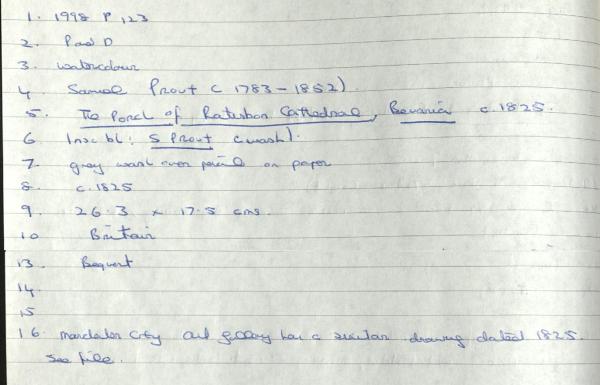 1. 1998 P 123
2. P and D
3. watercolour
4. Samuel Prout (1783-1852)
5. The Porch of Ratisbon Cathedral, Bavaria c.1825.
6 Insc bl: S Prout (wash).
7. grey wash over pencil on paper
8. c.1825
9. 26.3 x 17.5 cms.
10 Britain
13. Bequest
14.
15
16. Manchester City art gallery has a similar drawing dated 1825.
See file.